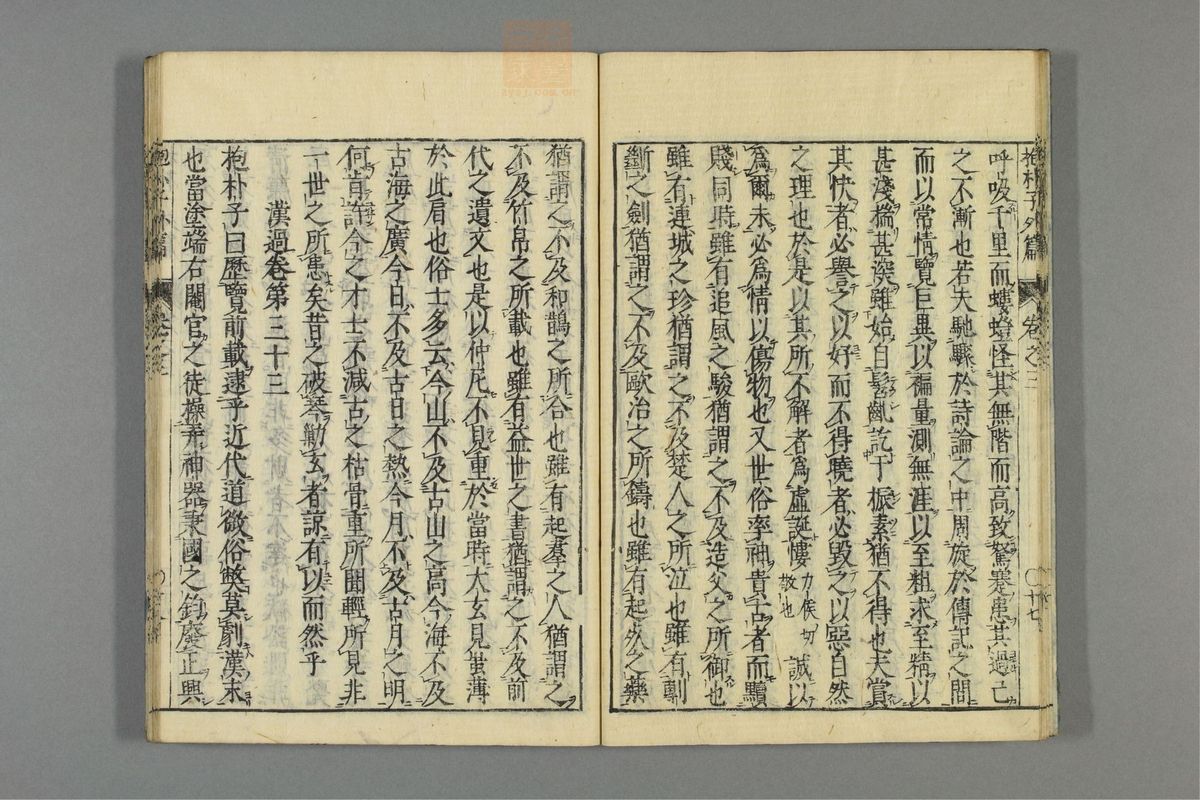 抱朴子外篇 卷之三 〇十七
呼吸千里而螻螘怪其無階而高致駑蹇患其過己
之不漸也若夫馳驟於詩論之中周旋於傳記之間
而以常情覽巨異以褊量測無涯以至粗求至精以
甚淺揣甚深雖始自髫齓訖于振素猶不得也夫賞
其快者必譽之以好而不得曉者必毀之以惡自然
之理也於是以其所不解者爲虛誕慺 力侯切 敬也 誠以
爲爾未必爲情以傷物也又世俗率神貴古者而黷
賤同時雖有追風之駿猶謂之不及造父之所御也
雖有連城之珍猶謂之不及楚人之所泣也雖有剸
斷之劍猶謂之不及歐冶之所鑄也雖有起死之藥
猶謂之不及和鵲之所合也雖有起羣之人猶謂之
不及竹帛之所載也雖有益世之書猶謂之不及前
代之遺文也是以仲尼不見重於當時大玄見蚩薄
於此肩也俗士多云今山不及古山之高今海不及
古海之廣今日不及古日之熱今月不及古月之明
何肯許今之才士不減古之枯骨重所聞輕所見非
一世之所患矣昔之破琴勦玄者諒有以而然乎
漢過卷第三十三
抱朴子曰歷覽前載逮乎近代道微俗獘莫劇漢末
也當塗端右閹官之徒操弄神器秉國之鈞廢正興
抱朴子外篇